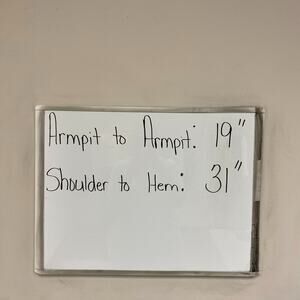 Armpit to Armpit: 19"
Shoulder to Hem: 31"